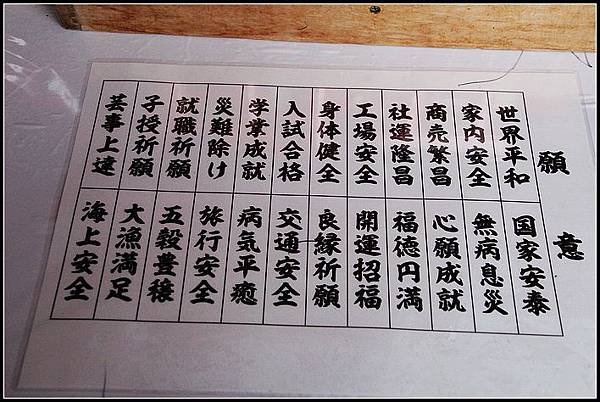 願意
世界平和
国家安泰
家内安全
無病息災
商売繁昌
心願成就
社運隆昌
福徳円満
工場安全
開運招福
身体健全
良縁祈願
入試合格
交通安全
学業成就
病気平癒
災難除け
旅行安全
就職祈願
五穀豊穣
子授祈願
大漁満足
芸事上達
海上安全